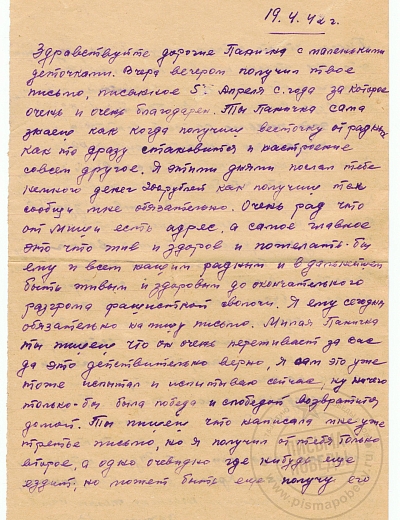 19.4.42 г.
Здравствуйте дорогие Паничка с маленькими
деточками. Вчера вечером получил твое
письмо, писанное 5го Апреля с.года за которое
очень и очень благодарен. Ты Паничка сама
знаеш как когда получиш весточку от родных
как то сразу становится и настроение
совсем другое. Я этими днями послал тебе
немного денег 200 рублей как получиш так
сообщи мне обязательно. Очень рад что
от Миши есть адрес, а самое главное
это что жив и здоров и пожелать-бы
ему и всем нашим родным и в дальнейшем
быть живым и здоровым до окончательного
разгрома фашисткой сволочи. Я ему сегодня
обязательно напишу письмо. Милая Паничка
ты пишеш что он очень переживает за вас
да это действительно верно, я сам это уже
тоже испытал и испытываю сейчас, ну ничего
только-бы была победа и с победой возвратится
домой. Ты пишеш что написала мне уже
третье письмо, но я получил от тебя только
второе, а одно очевидно где нибудь еще
ездит, но может быть еще получу его
ПИСЬМА ПОБЕДЫ
www.pismapobedy.ru